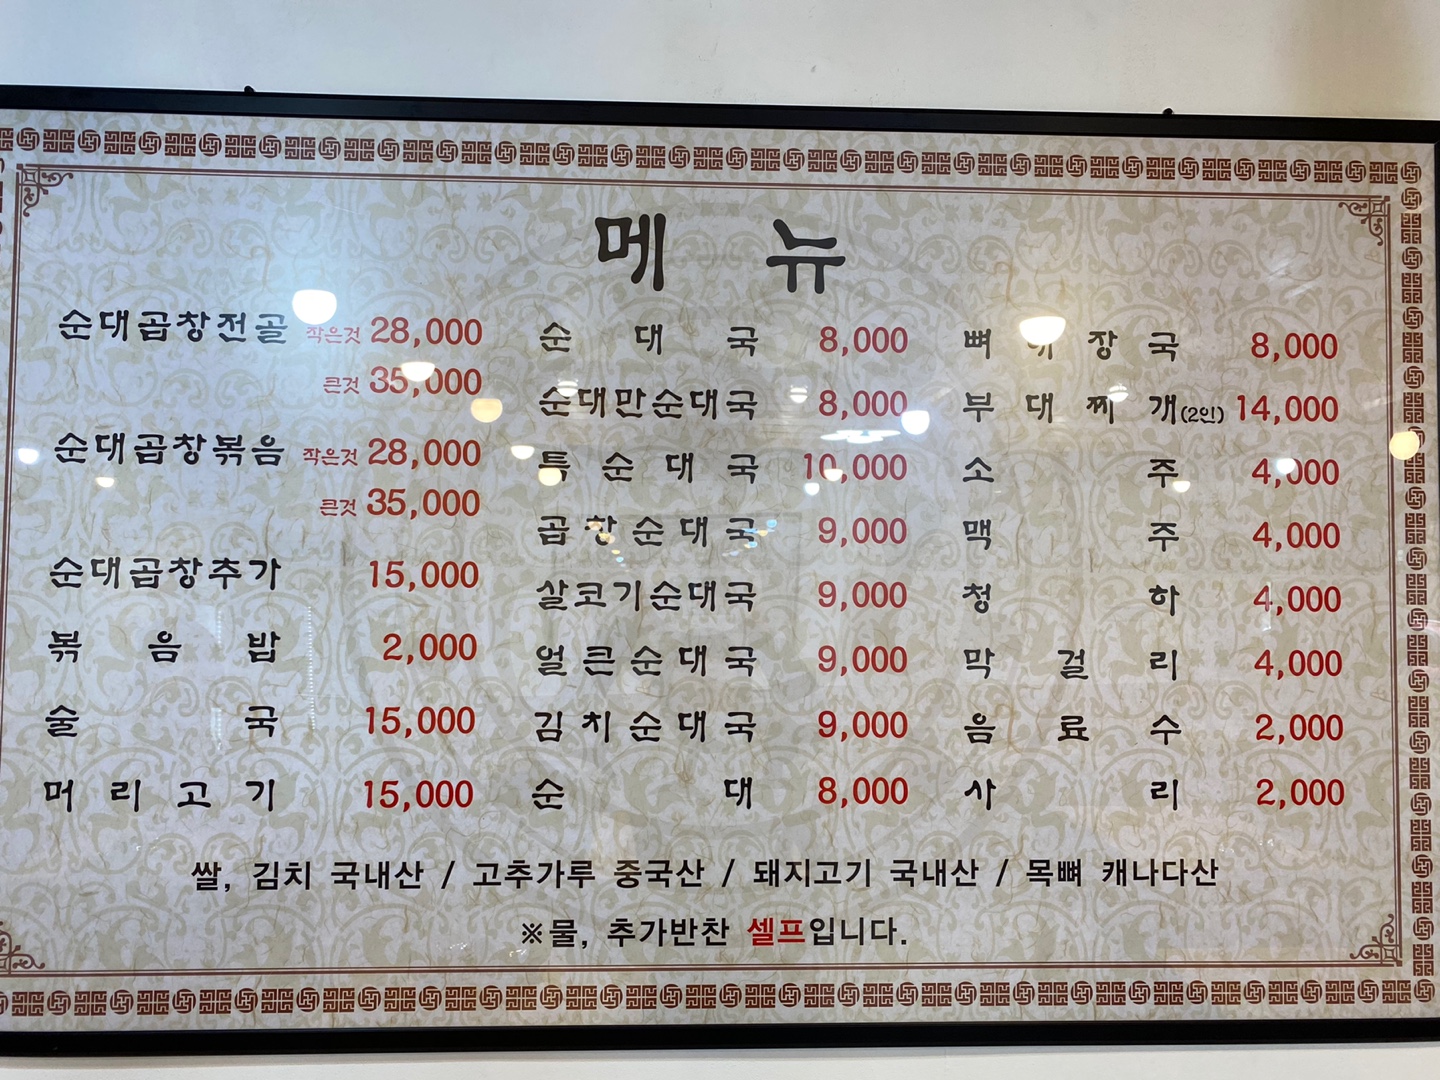 메뉴
순대곱창전골 작은것 28,000
큰것 35,000
순대곱창볶음 작은것 28,000
큰것 35,000
순대곱창추가 15,000
볶음밥 2,000
술국 15,000
머리고기 15,000
순대국 8,000
순대만순대국 8,000
특순대국 10,000
곱창순대국 9,000
살코기순대국 9,000
얼큰순대국 9,000
김치순대국 9,000
순대 8,000
뼈해장국 8,000
부대찌개(2인) 14,000
소주 4,000
맥주 4,000
청하 4,000
막걸리 4,000
음료수 2,000
사리 2,000
쌀, 김치 국내산 / 고추가루 중국산 / 돼지고기 국내산 / 목뼈 캐나다산
※물, 추가반찬 셀프입니다.